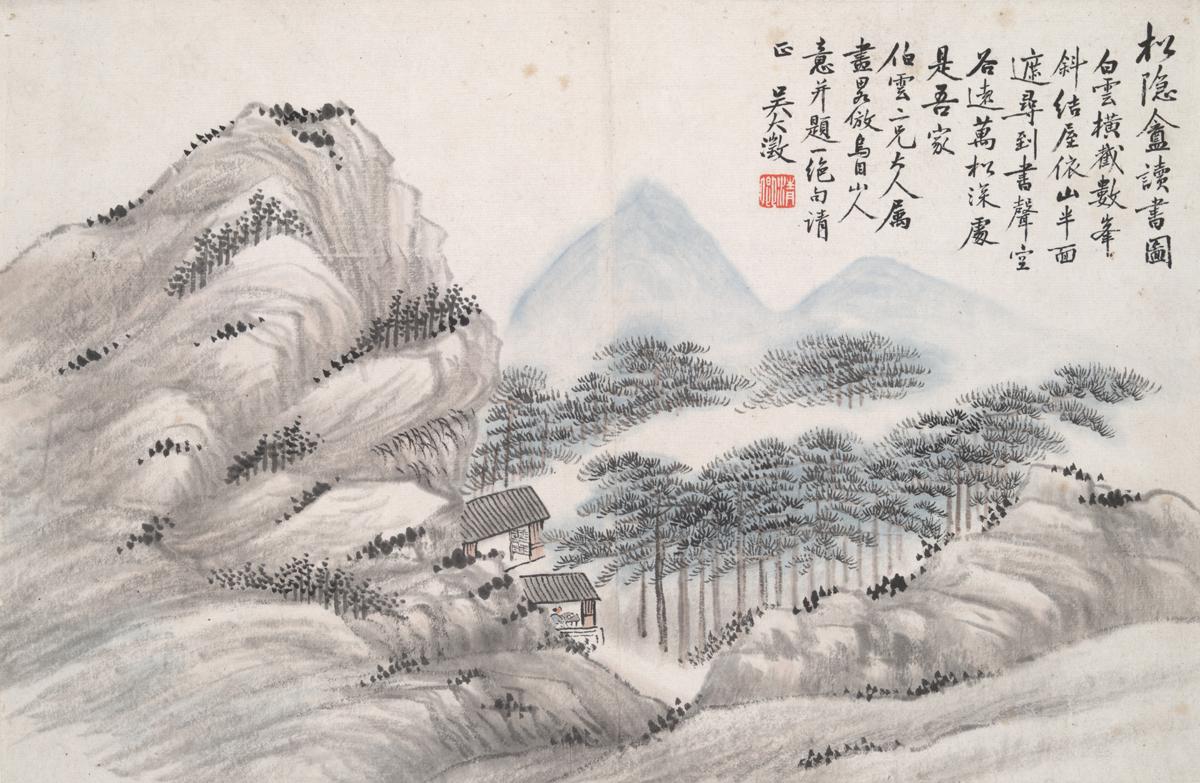 松隐盦讀書圖
白雲橫截數峯
斜結屋依山半面
遮尋到書聲空
谷遠萬松深處
是吾家
伯雲二兄大人属
畫畧倣烏目山人
意并題一絕句請
正 吳大澂
清卿